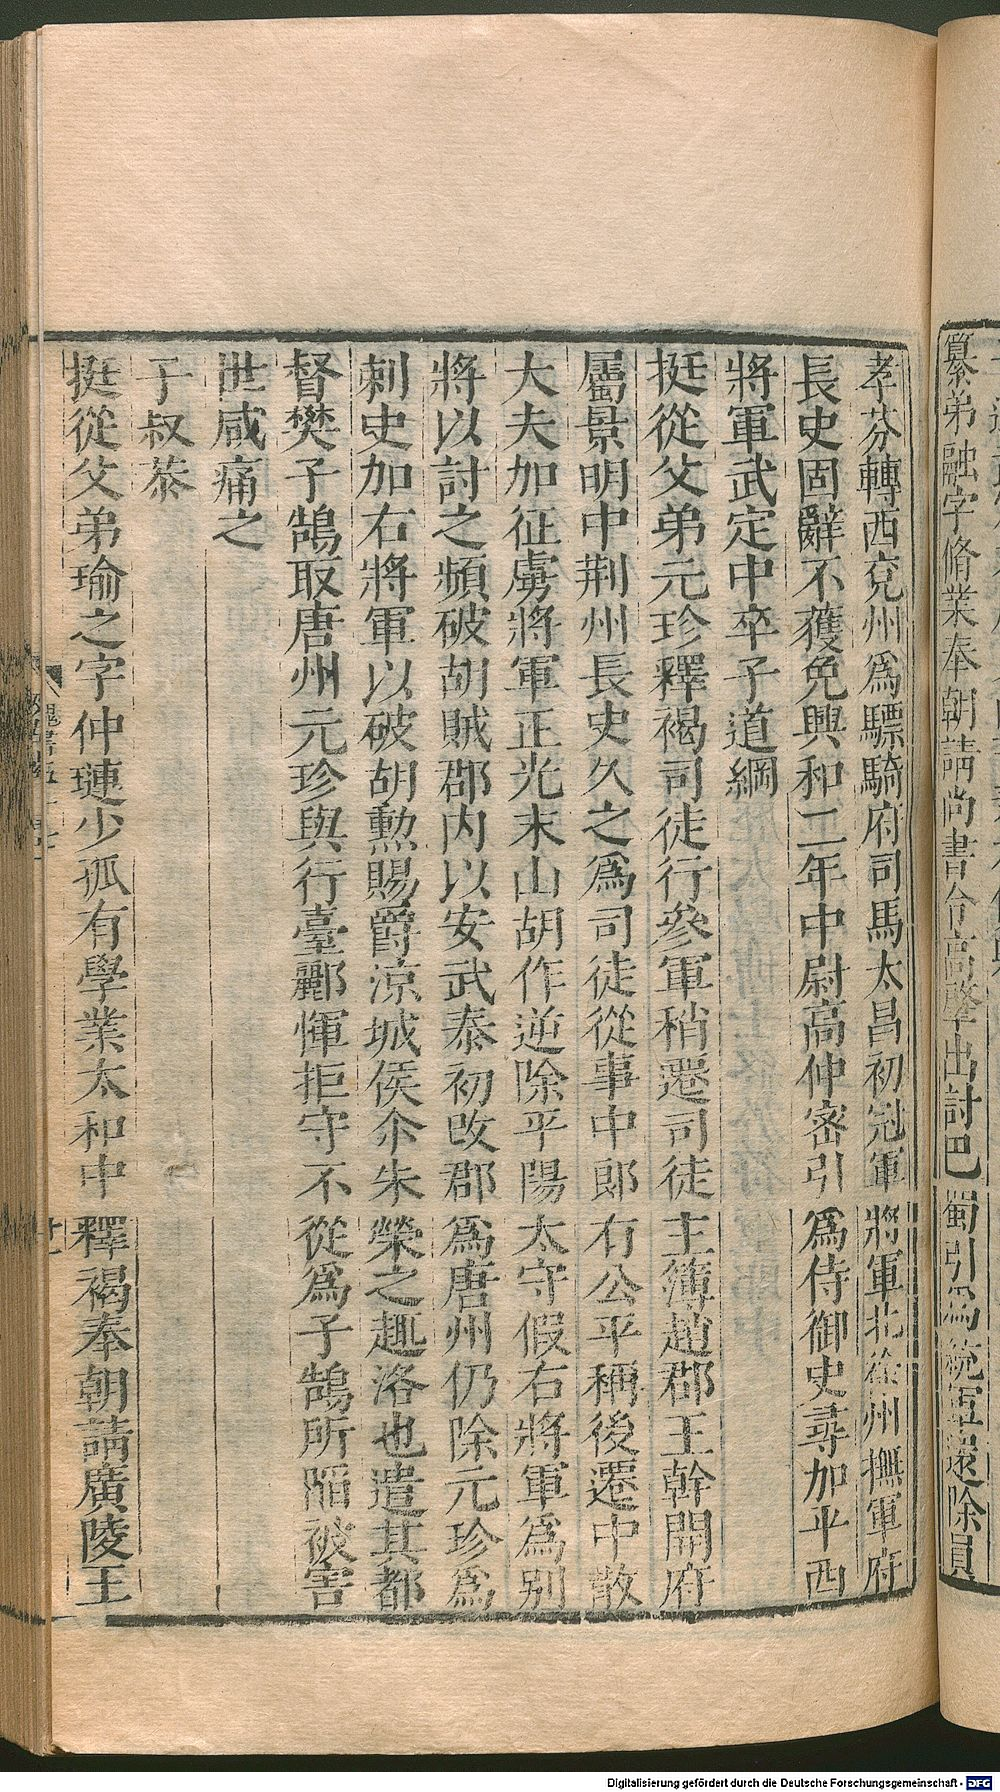 纂弟融字脩業奉朝請尚書令高肇出討巴蜀引爲統軍還除員
孝芬轉西兗州爲驃騎府司馬太昌初冠軍將軍北徐州撫軍府
長史固辭不獲免興和二年中尉高仲密引爲侍御史尋加平西
將軍武定中卒子道綱
挺從父弟元珍釋褐司徒行參軍稍遷司徒主簿趙郡王幹開府
屬景明中荆州長史久之爲司徒從事中郎有公平稱後遷中散
大夫加征虜將軍正光末山胡作逆除平陽太守假右將軍爲別
將以討之頻破胡賊郡內以安武泰初改郡爲唐州仍除元珍爲
刺史加右將軍以破胡勲賜爵涼城侯尒朱榮之趣洛也遣其都
督樊子鵠取唐州元珍與行臺酈惲拒守不從爲子鵠所陷被害
世咸痛之
子叔恭
挺從父弟瑜之字仲璉少孤有學業太和中釋褐奉朝請廣陵王
魏書五十七
Digitalisierung gefördert durch die Deutsche Forschungsgemeinschaft - DFG